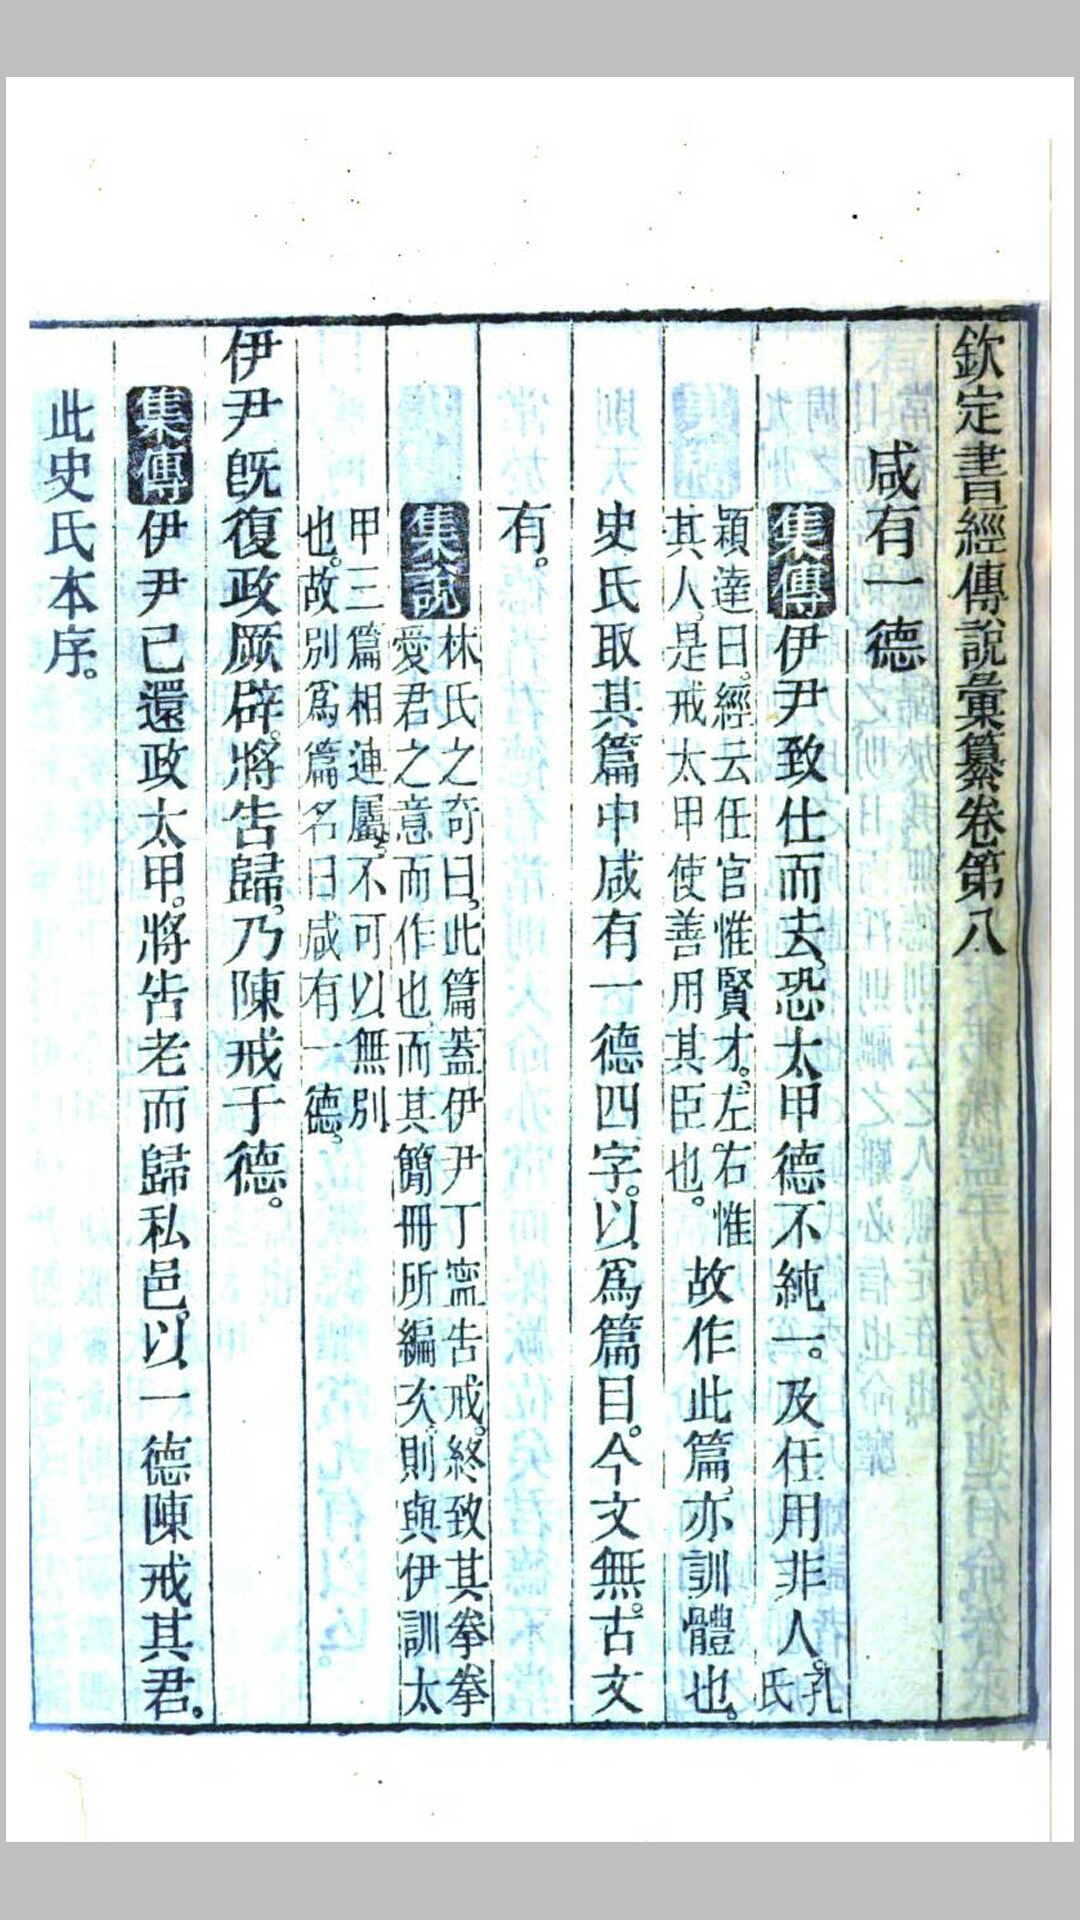 欽定書經傳說彙纂卷第八
咸有一德
集傳伊尹致仕而去恐太甲德不純一。及任用非人。孔氏
穎達曰。經云任官惟賢才。左右惟
其人是戒太甲使善用其臣也。故作此篇亦訓體也。
史氏取其篇中咸有一德四字。以爲篇目。今文無。古文
有。
集說林氏之奇曰此篇蓋伊尹丁寧告戒。終致其拳拳
愛君之意而作也而其簡冊所編次則與伊訓太
甲三篇相連屬不可以無別
也。故別爲篇名曰咸有一德。
伊尹既復政厥辟。將告歸乃陳戒于德。
集傳伊尹已還政太甲。將告老而歸私邑。以一德陳戒其君。
此史氏本序。